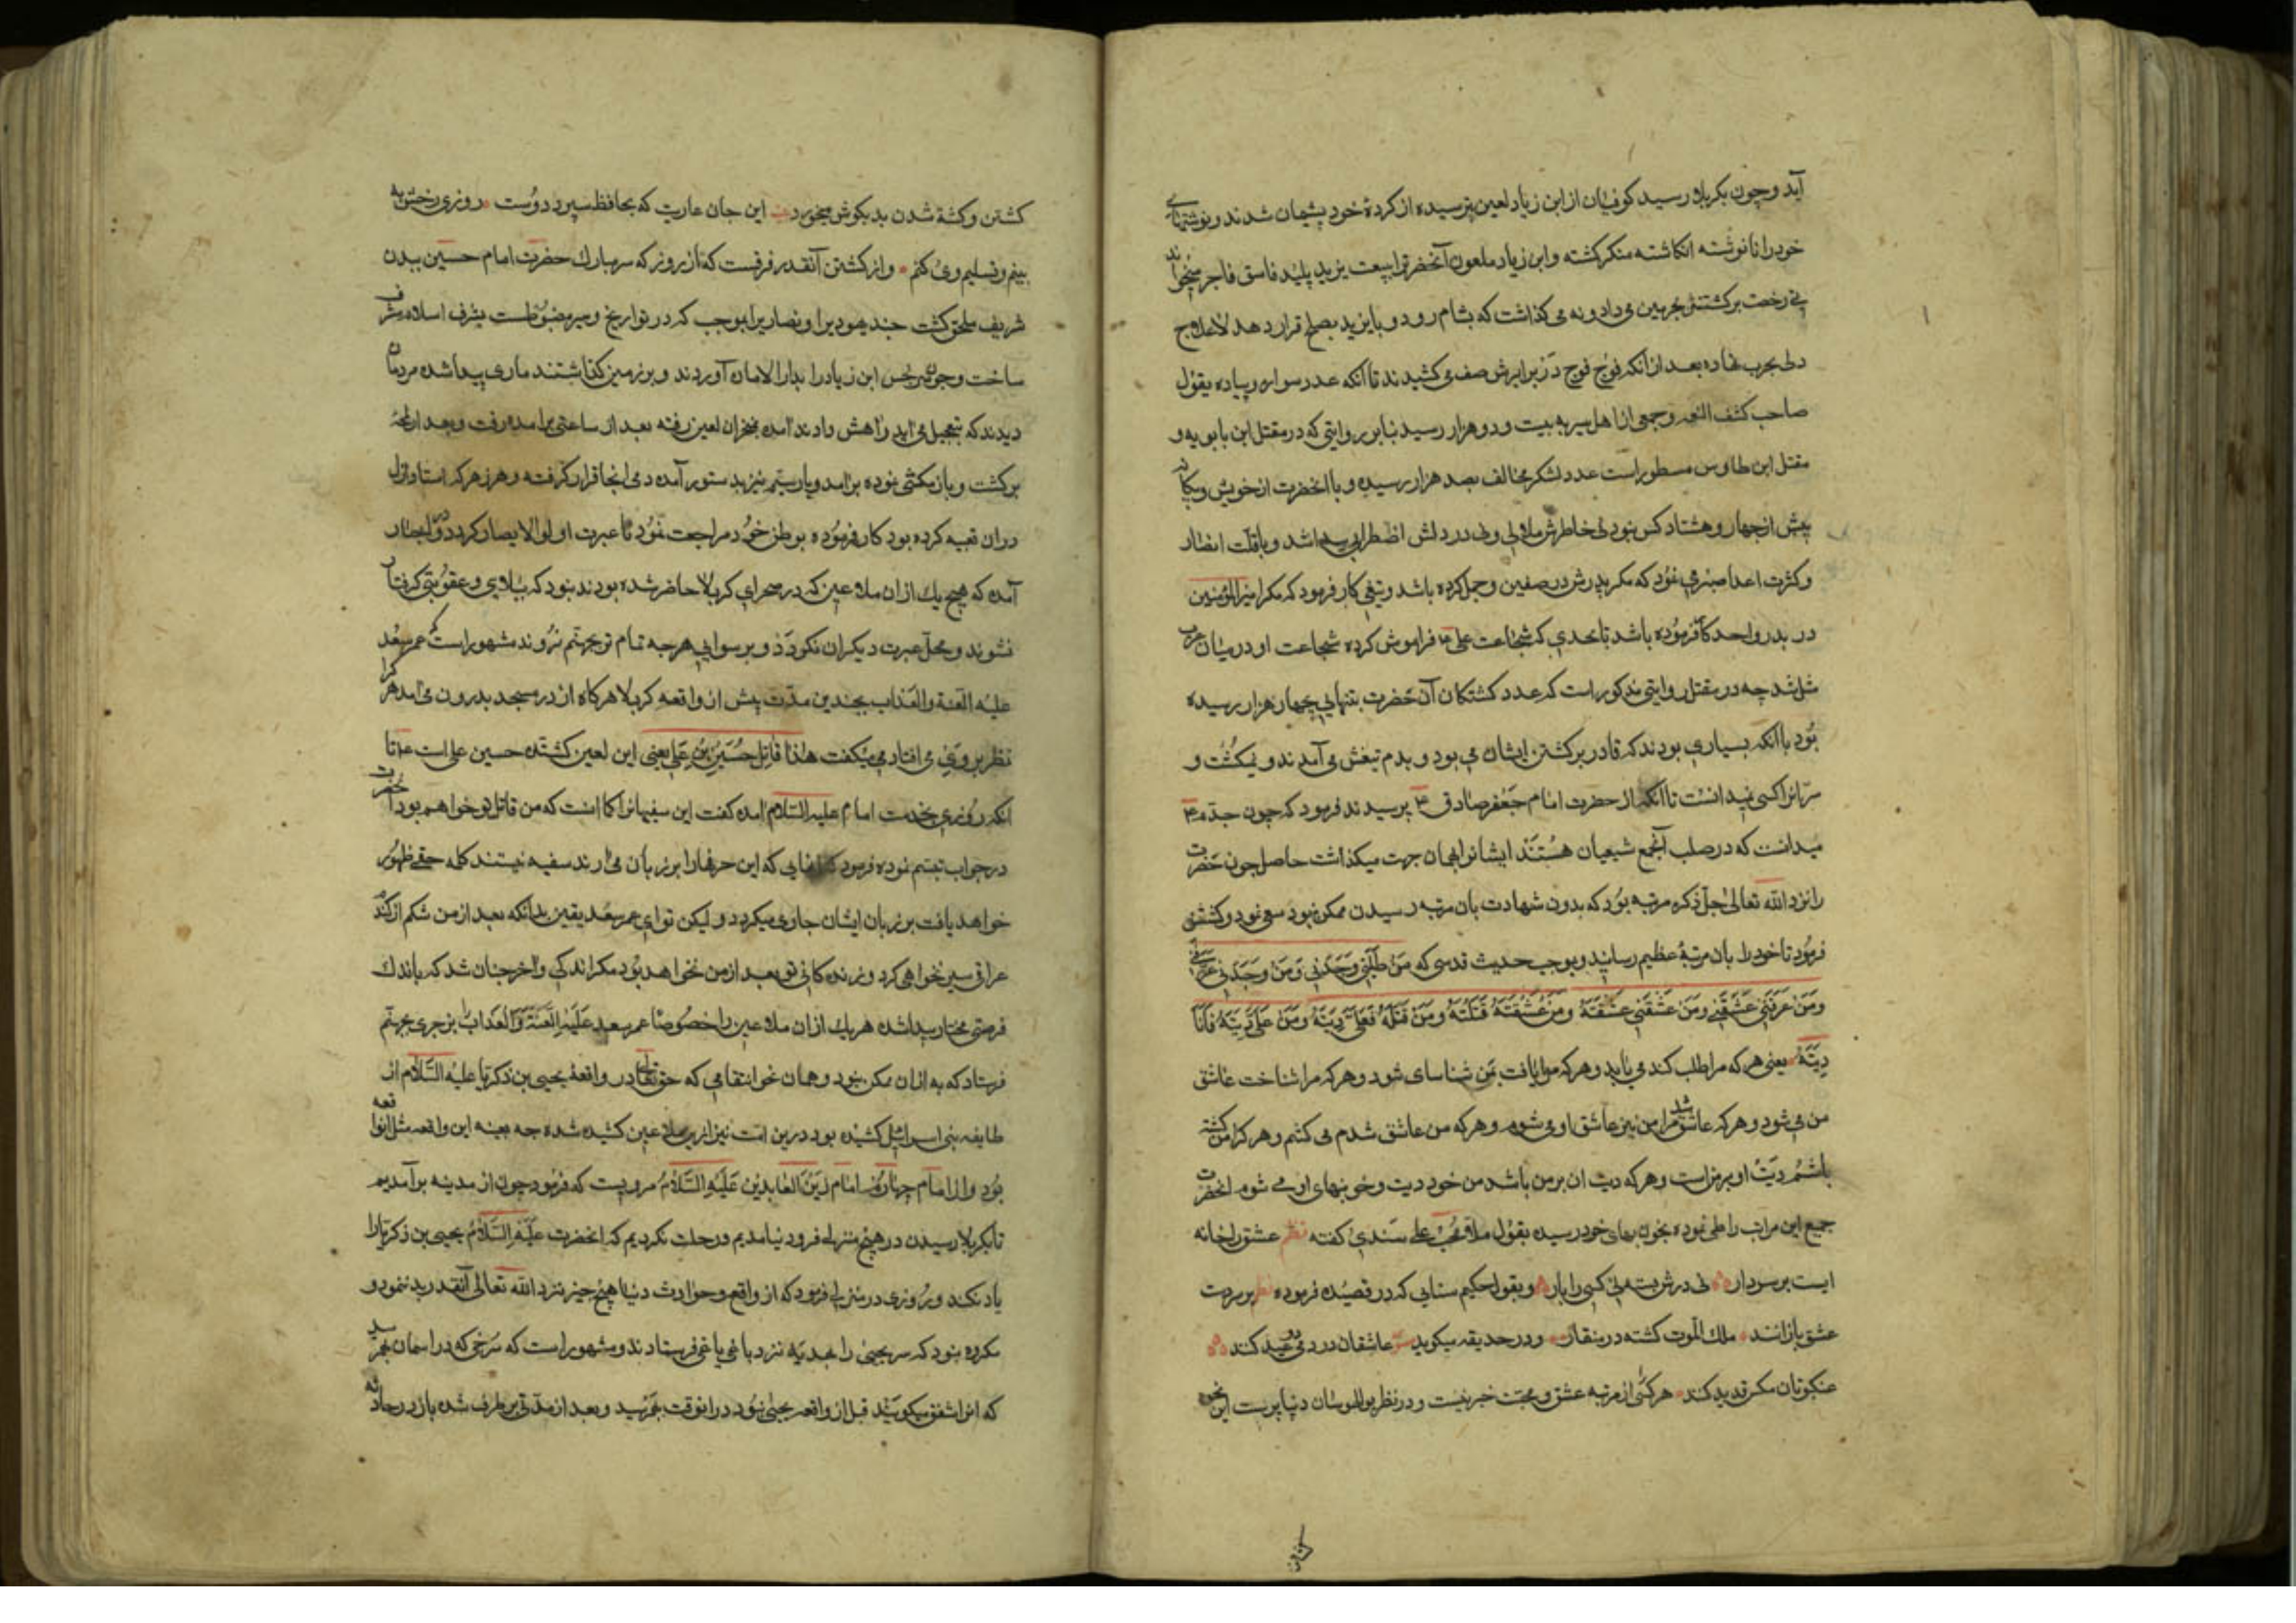 آید و چون بکربلا رسید کوفیان از ابن زیاد لعین ترسیده از کردهٔ خود پشیمان شدند و نوشتهای
خود را نانوشته انکاشته منکر کشته و ابن زیاد ملعون آنحضرترا ببیعت یزید پلید فاسق فاجر میخواند
نی رخصت برکشتنش بحرمین می داد و نه می کذاشت که بشام رود و با یزید بصلح قرار دهد لاعلاج
دل بحرب نهاده بعد از آنکه فوج فوج در برابرش صف می کشیدند تا آنکه عدد سوار و پیاده بقول
صاحب کشف الغمه و جمعی از اهل سیر به بیست و دو هزار رسید بنابر روایتی که در مقتل ابن بابویه و
مقتل ابن طاوس مسطور است عدد لشکر مخالف بصد هزار رسیده و با انحضرت از خویش و بیکانه
پیش از چهار و هشتاد کس نبود نی خاطرش ملالی و نی در دلش اضطرابی پیدا شد و با قلت انصار
و کثرت اعدا صبری نمود که مکر پدرش در صفین و جمل کرده باشد و تیغی کار فرمود که مکر امیرالمؤمنین
در بدر و احد کار فرموده باشد تا بحدی که شجاعت علی ع فراموش کرده شجاعت او در میان عرب
مثل شد چه در مقتل روایتی مذکور است که عدد کشتکان آن حضرت بتنهایی بچهار هزار رسیده
بود با آنکه بسیاری بودند که قادر بر کشتن ایشان می بود و بدم تیغش می آمدند و نمیکشت و
سرّ انرا کسی نمیدانست تا آنکه از حضرت امام جعفر صادق ع پرسیدند فرمود که چون جدم ع
میدانست که در صلب آنجمع شیعیان هستند ایشانرا بجهان جهت میکذاشت حاصل چون حضرت
را نزد الله تعالی جل ذکره مرتبه بود که بدون شهادت بان مرتبه رسیدن ممکن نبود سعی نمود و کشش
فرمود تا خود را بان مرتبهٔ عظیم رسانید و بموجب حدیث قدسی که مَن طلبنی وجدنی وَمَن وجَدنی عرفنی
ومَن عرفنی عشقنی ومَن عشقنی عشقته ومَن عشقته قتلته ومَن قتلته فعلیّ دیته ومَن علیّ دیته فانا
دیته یعنی هر که مرا طلب کند می یابد و هر که مرا یافت بمن شناسای شود و هر که مرا شناخت عاشق
من می شود و هر که عاشق شد مرا من نیز عاشق او می شوم و هر که من عاشق شدم می کشم و هر کرا من کشته
باشم دیت او بر من است و هر که دیت ان بر من باشد من خود دیت و خونبهای او می شوم انحضرت
جمیع این مراتب را طی نموده بخون بهای خود رسیده بقول ملا محب علی سندی کفته نظم عشق را خانه
ایست بر سر دار نی درش بسته نی کسی را بار و بقول حکیم سنایی که در قصیده فرموده نظم بر سر دست
عشق بازانند ملک الموت کشته در منقار و در حدیقه میکوید عاشقان در دمی دو عید کنند
عنکبوتان مکس قدید کنند هر کسی از مرتبه عشق و محبت خبر نیست و در نظر بوالهوسان دنیا پرست این نحو
کشتن و کشته شدن بد بکوش میخورد این جان عاریت که بحافظ سپرد دوست روزی رخش به
بینم و تسلیم وی کنم و از کشتن آنقدر فرقست که از روز که سر مبارک حضرت امام حسین ببدن
شریف ملحق کشت چند یهودیرا و نصاریرا بموجب که در تواریخ و سیر مضبوطست بشرف اسلام مشرف
ساخت و چون سر نجس ابن زیاد را بدار الامان آوردند و بر زمین کذاشتند ماری پیدا شده مردمان
دیدند که بتعجیل می اید راهش دادند آمده بنخران لعین رفته بعد از ساعتی برامده رفت و بعد از لمحهٔ
برکشت و باز مکثی نموده برامد و بار سیم نیز بدستور آمده دمی انجا قرار کرفته و هر زهر که استاد ازل
در ان تعبیه کرده بود کار فرموده بوطن خود مراجعت نمود تا عبرت اولوالابصار کردد و در اخبار
آمده که هیچ یک از ان ملاعین که در صحرای کربلا حاضر شده بودند نبود که ببلای و عقوبتی کرفتار
نشوند و محل عبرت دیکران نکردد و برسوایی هر چه تمام تر بجهنم نروند مشهور است که عمر سعد
علیه اللعنة والعذاب بچندین مدت پیش از واقعه کربلا هرکاه از در مسجد بدرون می آمد هر کرا
نظر بر وی می افتاد می یکفت هذا قاتل حُسَین بن عَلی یعنی این لعین کشنده حسین علی است ع تا
انکه روزی بخدمت امام علیه السلام امده کفت این سفیهانرا کمان انست که من قاتل تو خواهم بود آنحضرت
در جواب تبسم نموده فرمود که انهایی که این حرفها را بر زبان می آرند سفیه نیستند کلمه حقی ظهور
خواهد یافت بر زبان ایشان جاری میکردد ولیکن تو ای عمر سعد یقین بدانکه بعد از من شکم از کندم
عراق سیر نخواهی کرد و زنده کانی تو بعد از من نخواهد بود مکر اندکی و اخر چنان شد که باندک
فرصتی مختار پیدا شده هر یک از ان ملاعین را خصوصا عمر سعد عَلَیه اللعنة والعَذاب بزجری بجهنم
فرستاد که به از ان ممکن نبود و همان نحو انتقامی که حق تعالی در واقعهٔ یحیی بن ذکریا علیه السّلام از
طایفه بنی اسرائیل کشیده بود درین امت نیز از این ملاعین کشیده شده چه بعینه این واقعه مثل انواقعه
بود و از امام چهارم امام زین العابدین عَلَیهِ السَّلام مرویست که فرمود چون از مدینه برآمدیم
تا بکربلا رسیدن در هیچ منزلی فرود نیامدیم و رحلت نکردیم که انحضرت علیه السلام یحیی بن زکریا را
یاد نکند و روزی در منزلی فرمود که از واقع و حوادث دنیا هیچ چیز نزد الله تعالی آنقدر بد ننمود و
مکروه نبود که سر یحیی را بهدیه نزد باغی یاغی فرستادند و مشهور است که سرخی که در اسمان بهم رسید
که انرا شفق میکویند قبل از واقعه یحیی نبود در انوقت بهم رسید و بعد از مدتی بر طرف شده باز در حادثه